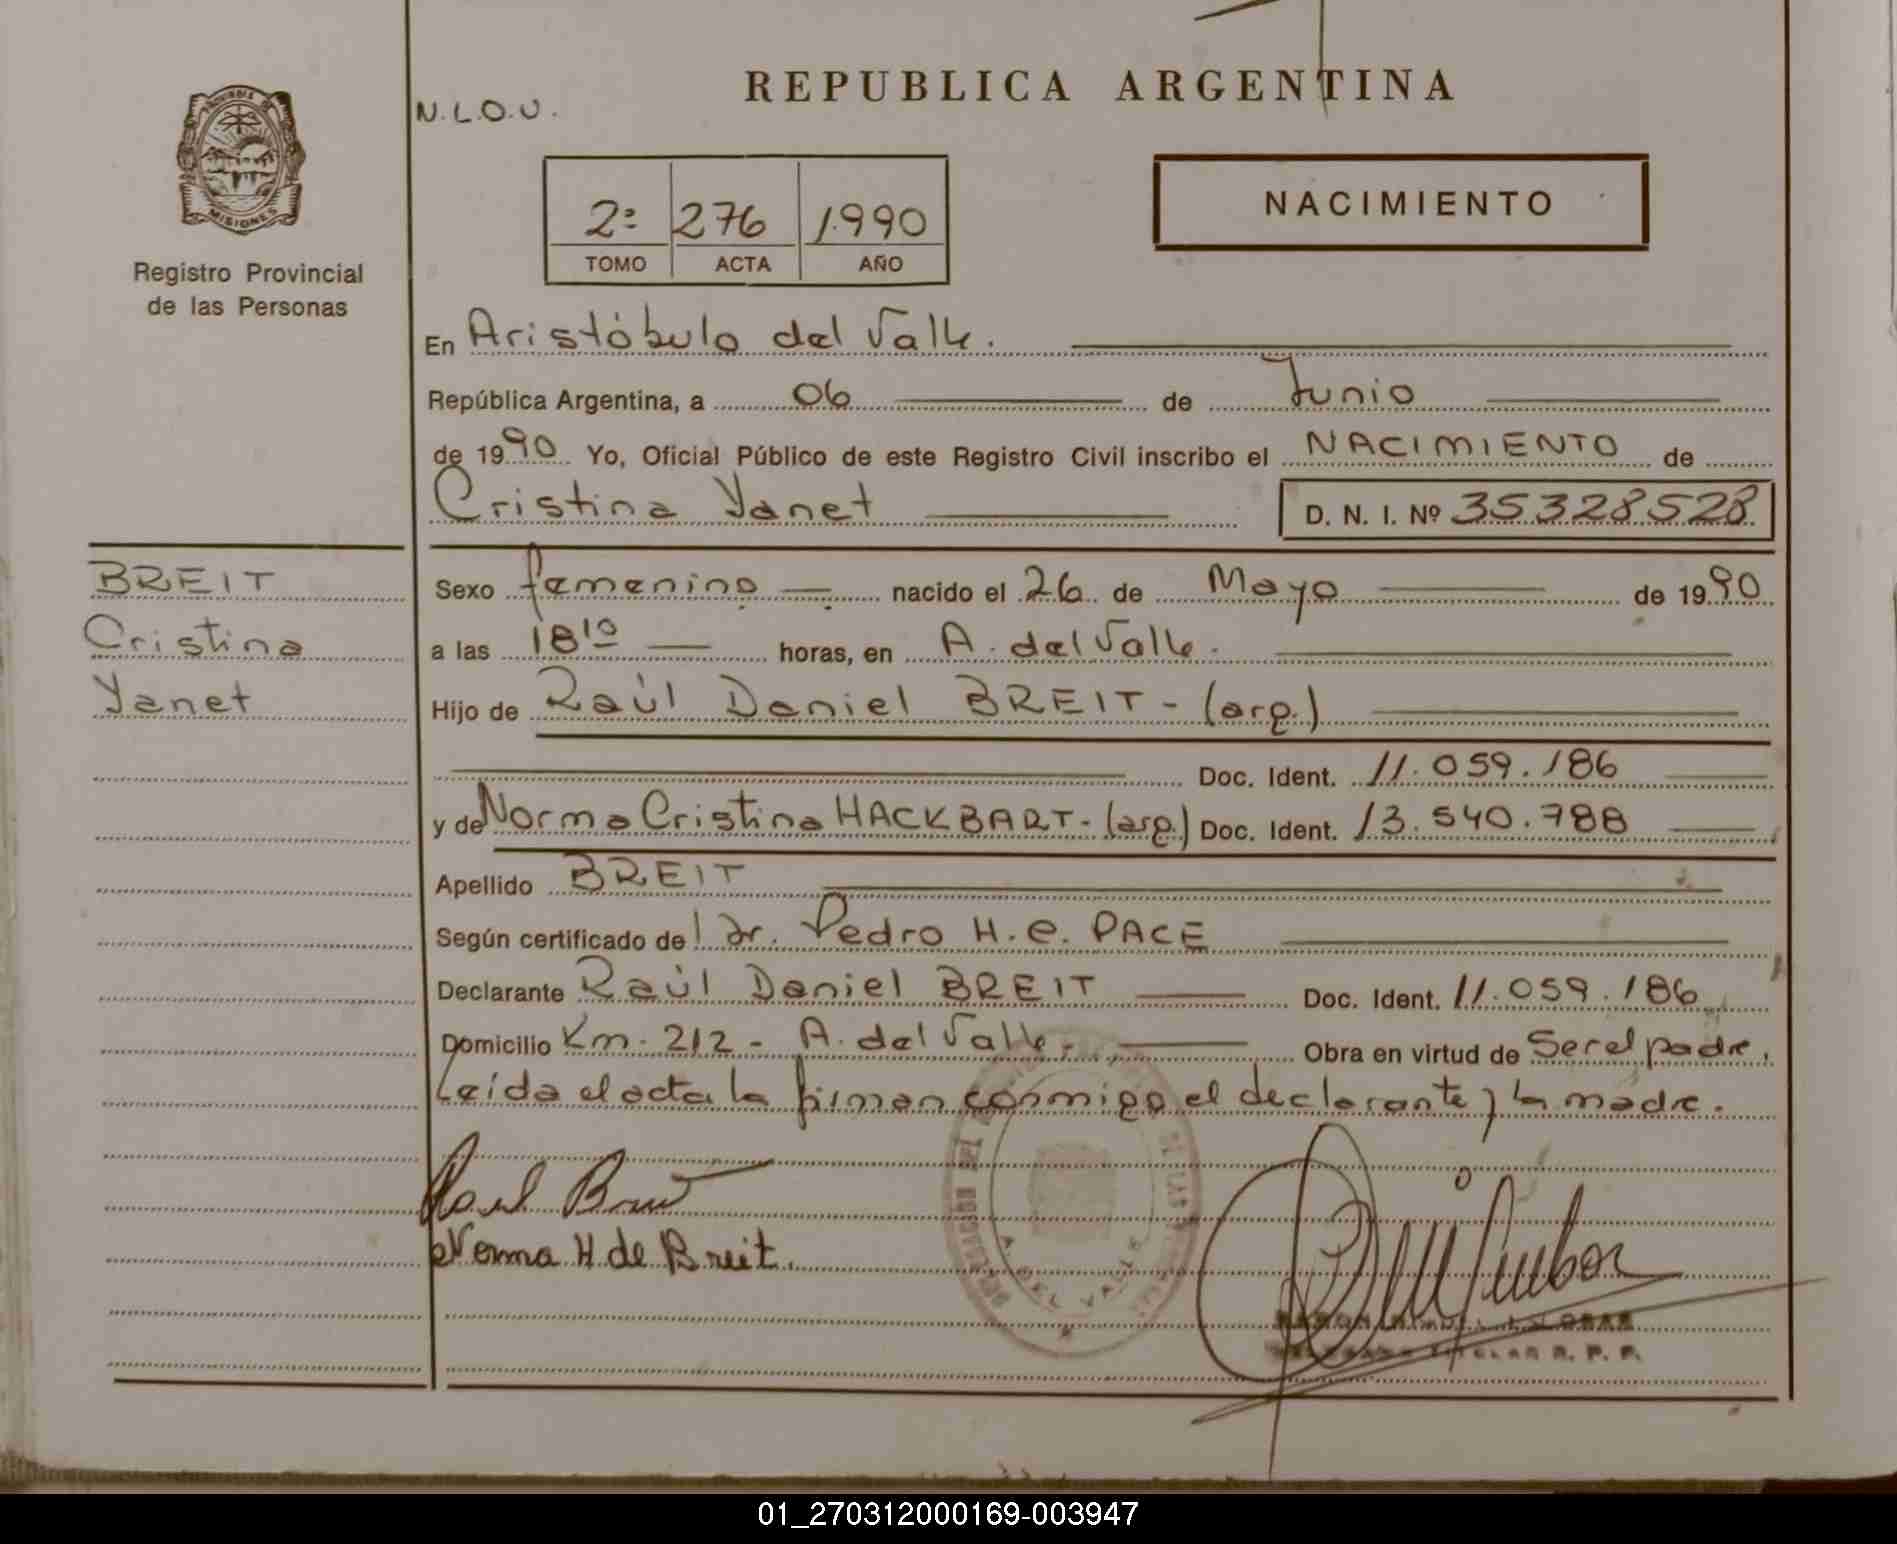 REPUBLICA ARGENTINA
N.L.O.U.
PROVINCIA DE
MISIONES
Registro Provincial
de las Personas
2º 276 1.990
TOMO ACTA AÑO
NACIMIENTO
En Aristóbulo del Valle.
República Argentina, a 06 de Junio
de 1990 Yo, Oficial Público de este Registro Civil inscribo el NACIMIENTO de
Cristina Yanet D. N. I. Nº 35328528
BREIT
Cristina
Yanet
Sexo femenino nacido el 26 de Mayo de 1990
a las 18¹⁰ horas, en A. del Valle.
Hijo de Raúl Daniel BREIT - (arg.)
Doc. Ident. 11.059.186
y de Norma Cristina HACKBART - (arg.) Doc. Ident. 13.540.788
Apellido BREIT
Según certificado del Dr. Pedro H. C. PACE
Declarante Raúl Daniel BREIT Doc. Ident. 11.059.186
Domicilio Km. 212 - A. del Valle - Obra en virtud de Ser el padre,
Leída el acta la firman conmigo el declarante y la madre.
Raul Breit
Norma H de Breit.
DELEGACION DEL
A. DEL VALLE
TITULAR R. P. P.
01_270312000169-003947